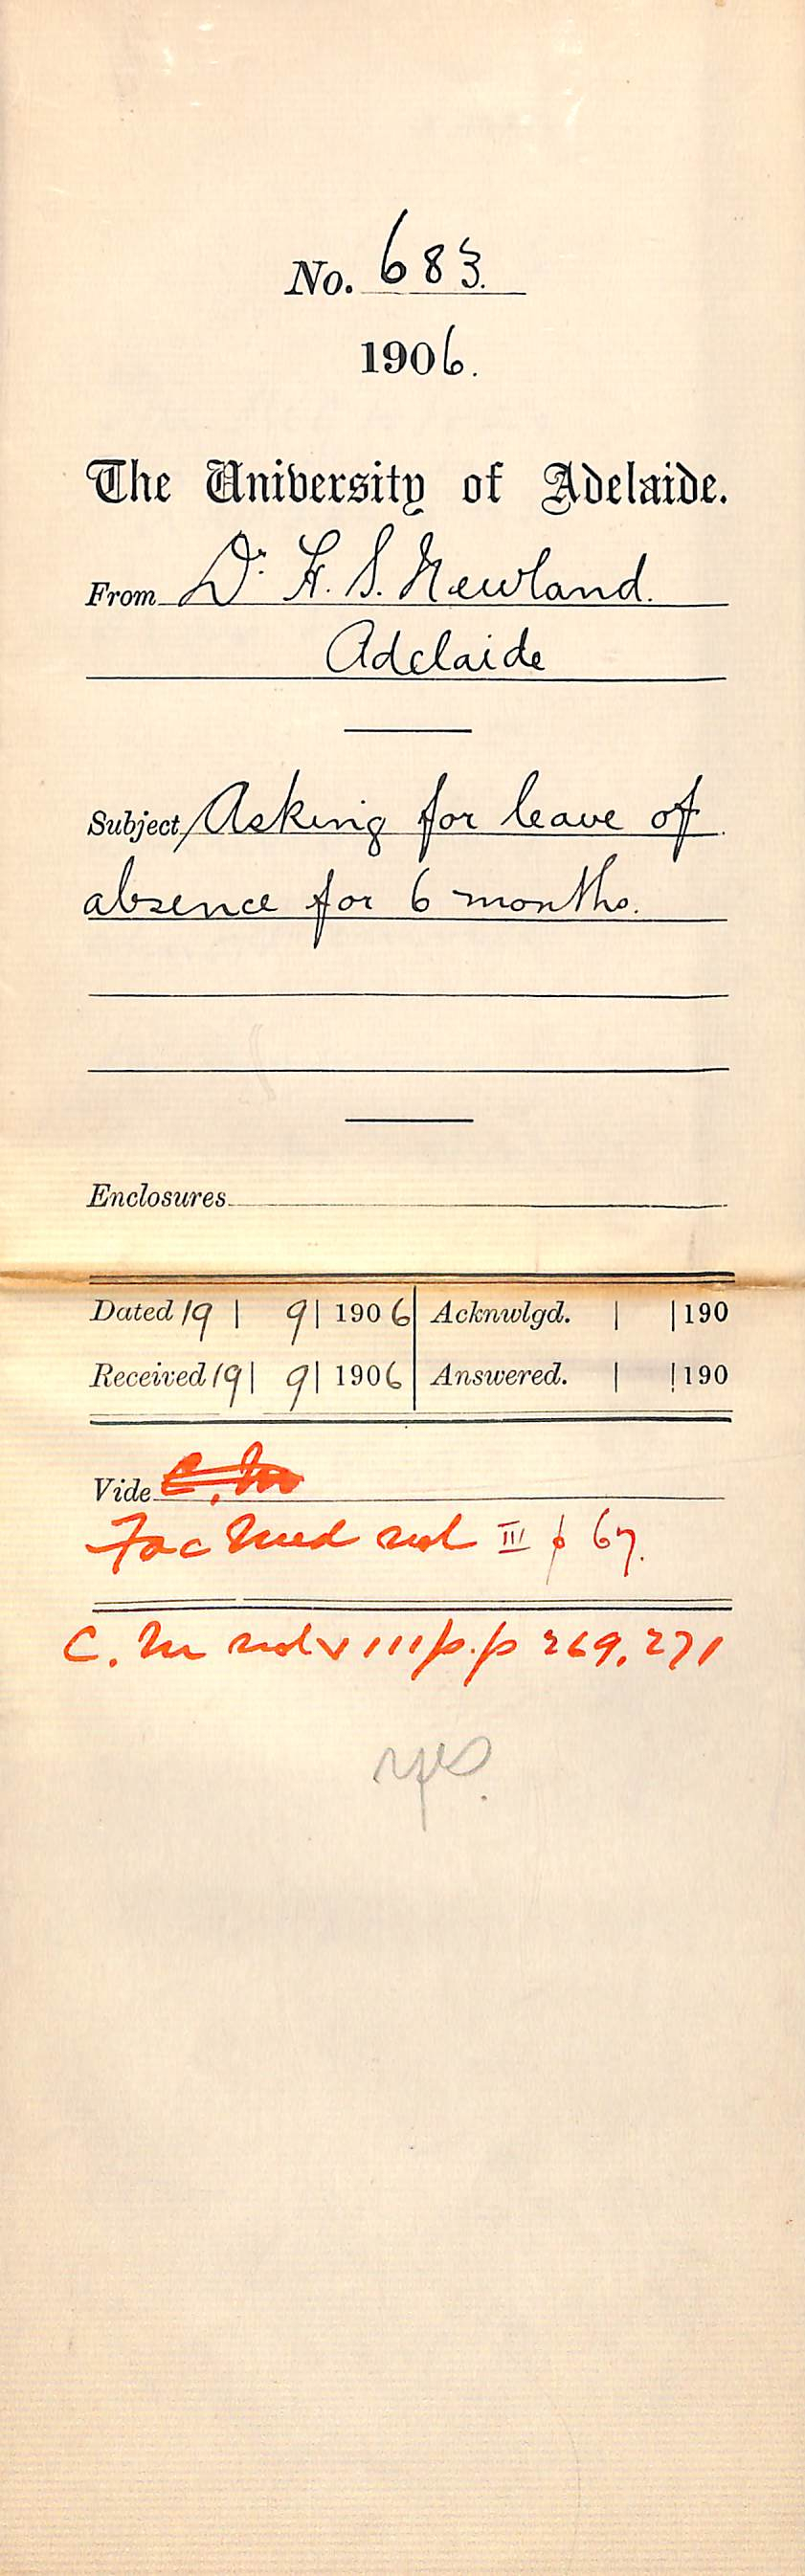 No. 683.
1906.
The University of Adelaide.
From Dr. H. S. Newland.
Adelaide
Subject Asking for leave of
absence for 6 months.
Enclosures
Dated 19 | 9 | 1906 Acknwlgd. | | 190
Received 19 | 9 | 1906 Answered. | | 190
Vide C. M
Fac Med vol III p 67.
C. M vol VIII p.p 269, 271
yes.